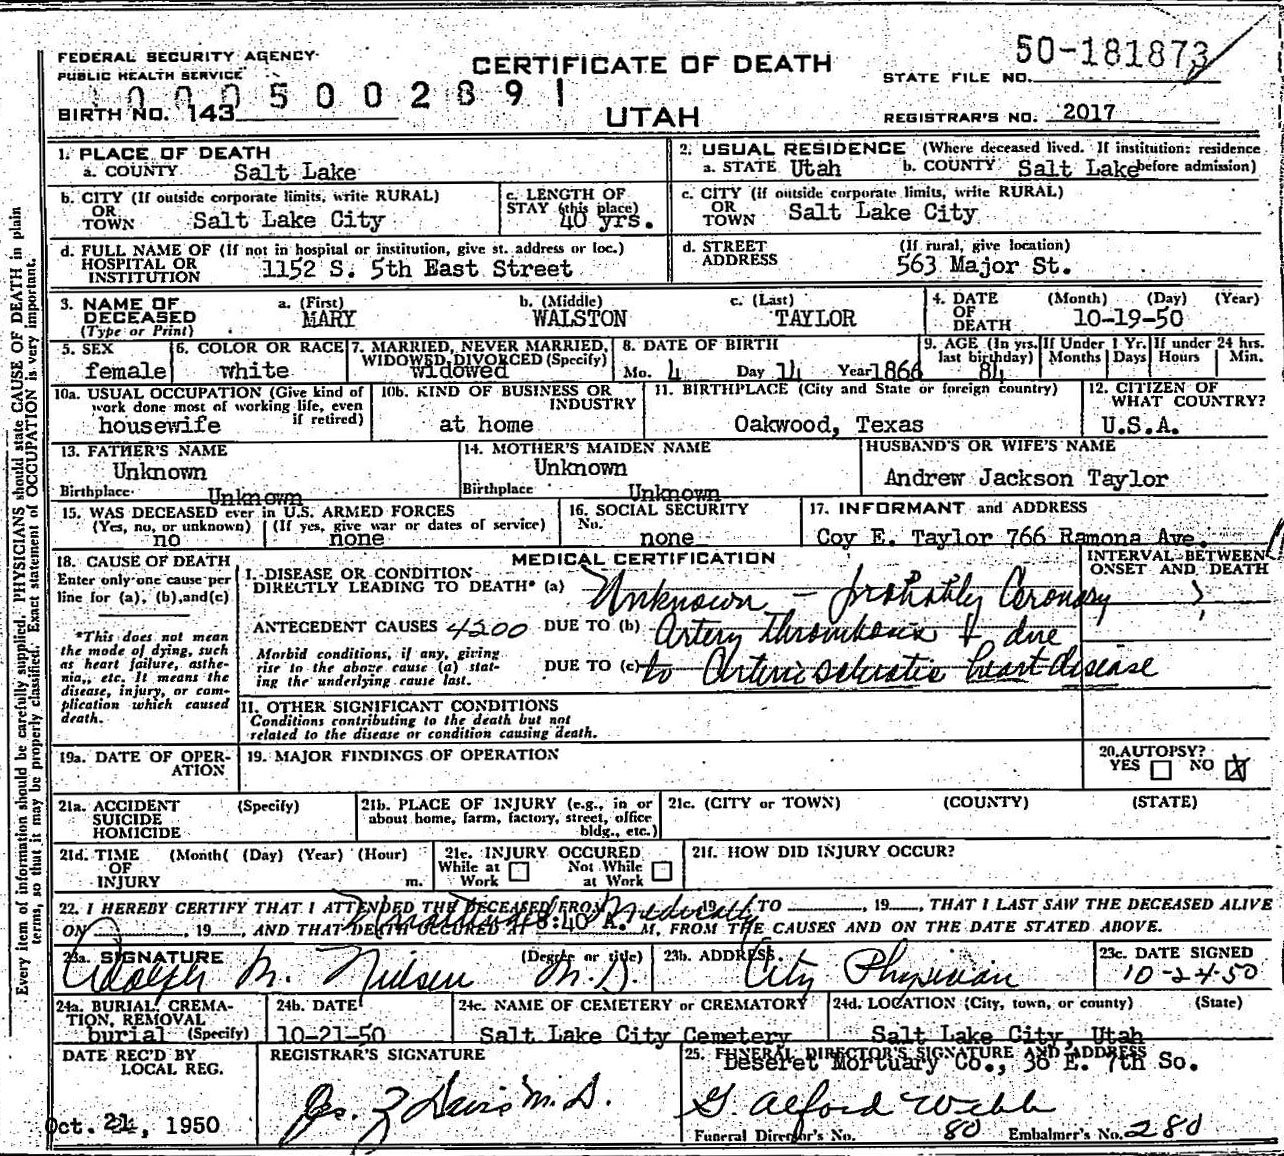 FEDERAL SECURITY AGENCY
PUBLIC HEALTH SERVICE
CERTIFICATE OF DEATH
50-181873
STATE FILE NO.
0005002891
BIRTH NO. 143
UTAH
REGISTRAR'S NO. 2017
1. PLACE OF DEATH
a. COUNTY Salt Lake
2. USUAL RESIDENCE (Where deceased lived. If institution: residence before admission)
a. STATE Utah b. COUNTY Salt Lake
b. CITY (If outside corporate limits, write RURAL)
OR TOWN Salt Lake City
c. LENGTH OF STAY (this place) 40 yrs.
c. CITY (If outside corporate limits, write RURAL)
OR TOWN Salt Lake City
d. FULL NAME OF (If not in hospital or institution, give st. address or loc.)
HOSPITAL OR INSTITUTION 1152 S. 5th East Street
d. STREET ADDRESS (If rural, give location)
563 Major St.
3. NAME OF DECEASED (Type or Print)
a. (First) MARY
b. (Middle) WALSTON
c. (Last) TAYLOR
4. DATE OF DEATH (Month) (Day) (Year)
10-19-50
5. SEX female
6. COLOR OR RACE white
7. MARRIED, NEVER MARRIED, WIDOWED, DIVORCED (Specify) widowed
8. DATE OF BIRTH
Mo. 4 Day 14 Year 1866
9. AGE (In yrs. last birthday) 84
If Under 1 Yr. Months Days
If under 24 hrs. Hours Min.
10a. USUAL OCCUPATION (Give kind of work done most of working life, even if retired)
housewife
10b. KIND OF BUSINESS OR INDUSTRY
at home
11. BIRTHPLACE (City and State or foreign country)
Oakwood, Texas
12. CITIZEN OF WHAT COUNTRY?
U.S.A.
13. FATHER'S NAME
Unknown
Birthplace Unknown
14. MOTHER'S MAIDEN NAME
Unknown
Birthplace Unknown
HUSBAND'S OR WIFE'S NAME
Andrew Jackson Taylor
15. WAS DECEASED ever in U.S. ARMED FORCES
(Yes, no, or unknown) (If yes, give war or dates of service)
no none
16. SOCIAL SECURITY No.
none
17. INFORMANT and ADDRESS
Coy E. Taylor 766 Ramona Ave.
18. CAUSE OF DEATH
Enter only one cause per line for (a), (b), and (c)
*This does not mean the mode of dying, such as heart failure, asthenia,, etc. It means the disease, injury, or complication which caused death.
MEDICAL CERTIFICATION
INTERVAL BETWEEN ONSET AND DEATH
I. DISEASE OR CONDITION DIRECTLY LEADING TO DEATH* (a) Unknown - probably Coronary
ANTECEDENT CAUSES 4200 DUE TO (b) Artery thrombosis & due
Morbid conditions, if any, giving rise to the above cause (a) stating the underlying cause last.
DUE TO (c) to Arteriosclerotic heart disease
II. OTHER SIGNIFICANT CONDITIONS
Conditions contributing to the death but not related to the disease or condition causing death.
19a. DATE OF OPERATION
19. MAJOR FINDINGS OF OPERATION
20. AUTOPSY?
YES NO X
21a. ACCIDENT SUICIDE HOMICIDE (Specify)
21b. PLACE OF INJURY (e.g., in or about home, farm, factory, street, office bldg., etc.)
21c. (CITY or TOWN) (COUNTY) (STATE)
21d. TIME OF INJURY (Month( (Day) (Year) (Hour) m.
21e. INJURY OCCURED
While at Work Not While at Work
21f. HOW DID INJURY OCCUR?
22. I HEREBY CERTIFY THAT I ATTENDED THE DECEASED FROM 19 TO , 19 , THAT I LAST SAW THE DECEASED ALIVE
Unattended Medically
ON , 19 , AND THAT DEATH OCCURED AT 8:40 A. M, FROM THE CAUSES AND ON THE DATE STATED ABOVE.
23a. SIGNATURE (Degree or title)
Adolph M. Nielsen M.D.
23b. ADDRESS.
City Physician
23c. DATE SIGNED
10-24-50
24a. BURIAL, CREMATION, REMOVAL (Specify)
burial
24b. DATE
10-21-50
24c. NAME OF CEMETERY or CREMATORY
Salt Lake City Cemetery
24d. LOCATION (City, town, or county) (State)
Salt Lake City, Utah
DATE REC'D BY LOCAL REG.
Oct. , 1950
REGISTRAR'S SIGNATURE
Davis M.D.
25. FUNERAL DIRECTOR'S SIGNATURE AND ADDRESS
Deseret Mortuary Co., 36 E. 7th So.
G. Alford Webb
Funeral Director's No. 80 Embalmer's No. 280
Every item of information should be carefully supplied. PHYSICIANS should state CAUSE OF DEATH in plain
terms, so that it may be properly classified. Exact statement of OCCUPATION is very important.